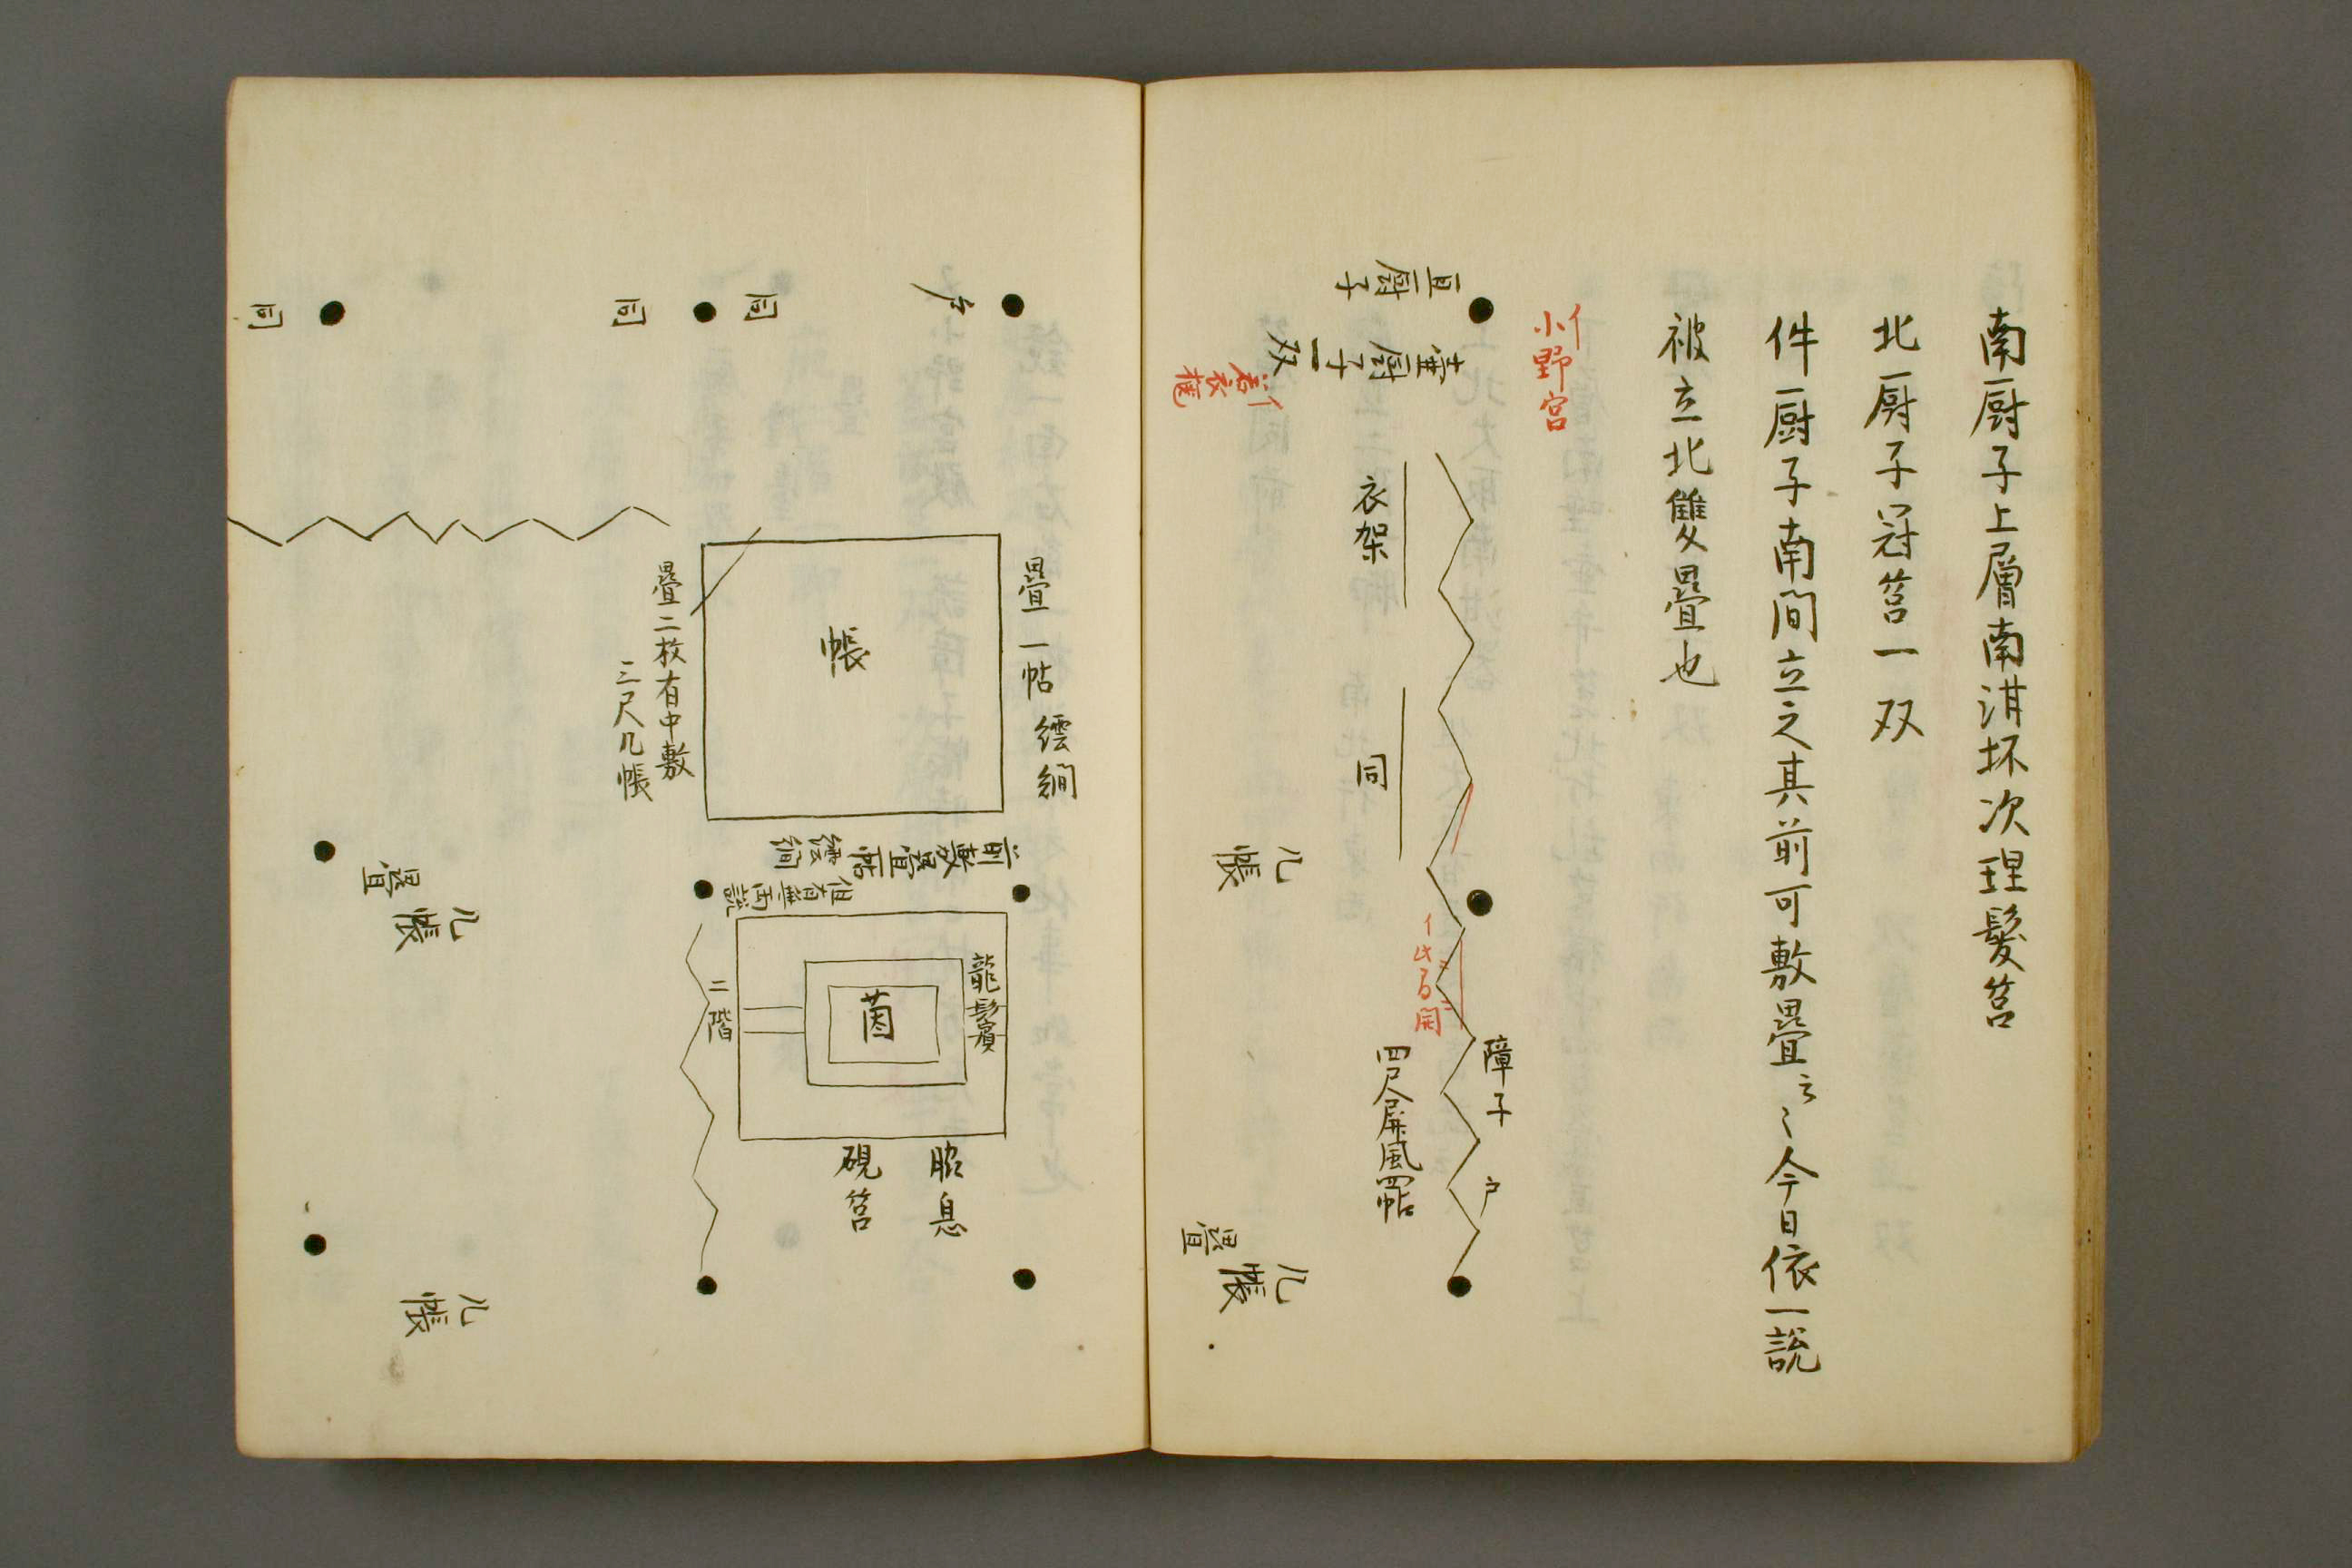 南厨子上層南泔坏次理髪筥
北厨子冠筥一双
件厨子南間立之其前可敷疊云〻今日依一説
被立北雙疊也
イ
小野宮
厨子
厨子一双
イ
衣架
同
几帳
障子
戸
四尺屏風四帖
疊
几帳
戸
同
同
同
疊一帖繧繝
帳
疊二枚有中敷
三尺几帳
前敷疊一帖繧繝
但有無両説
龍鬢
茵
二階
脇息
硯筥
疊
几帳
几帳